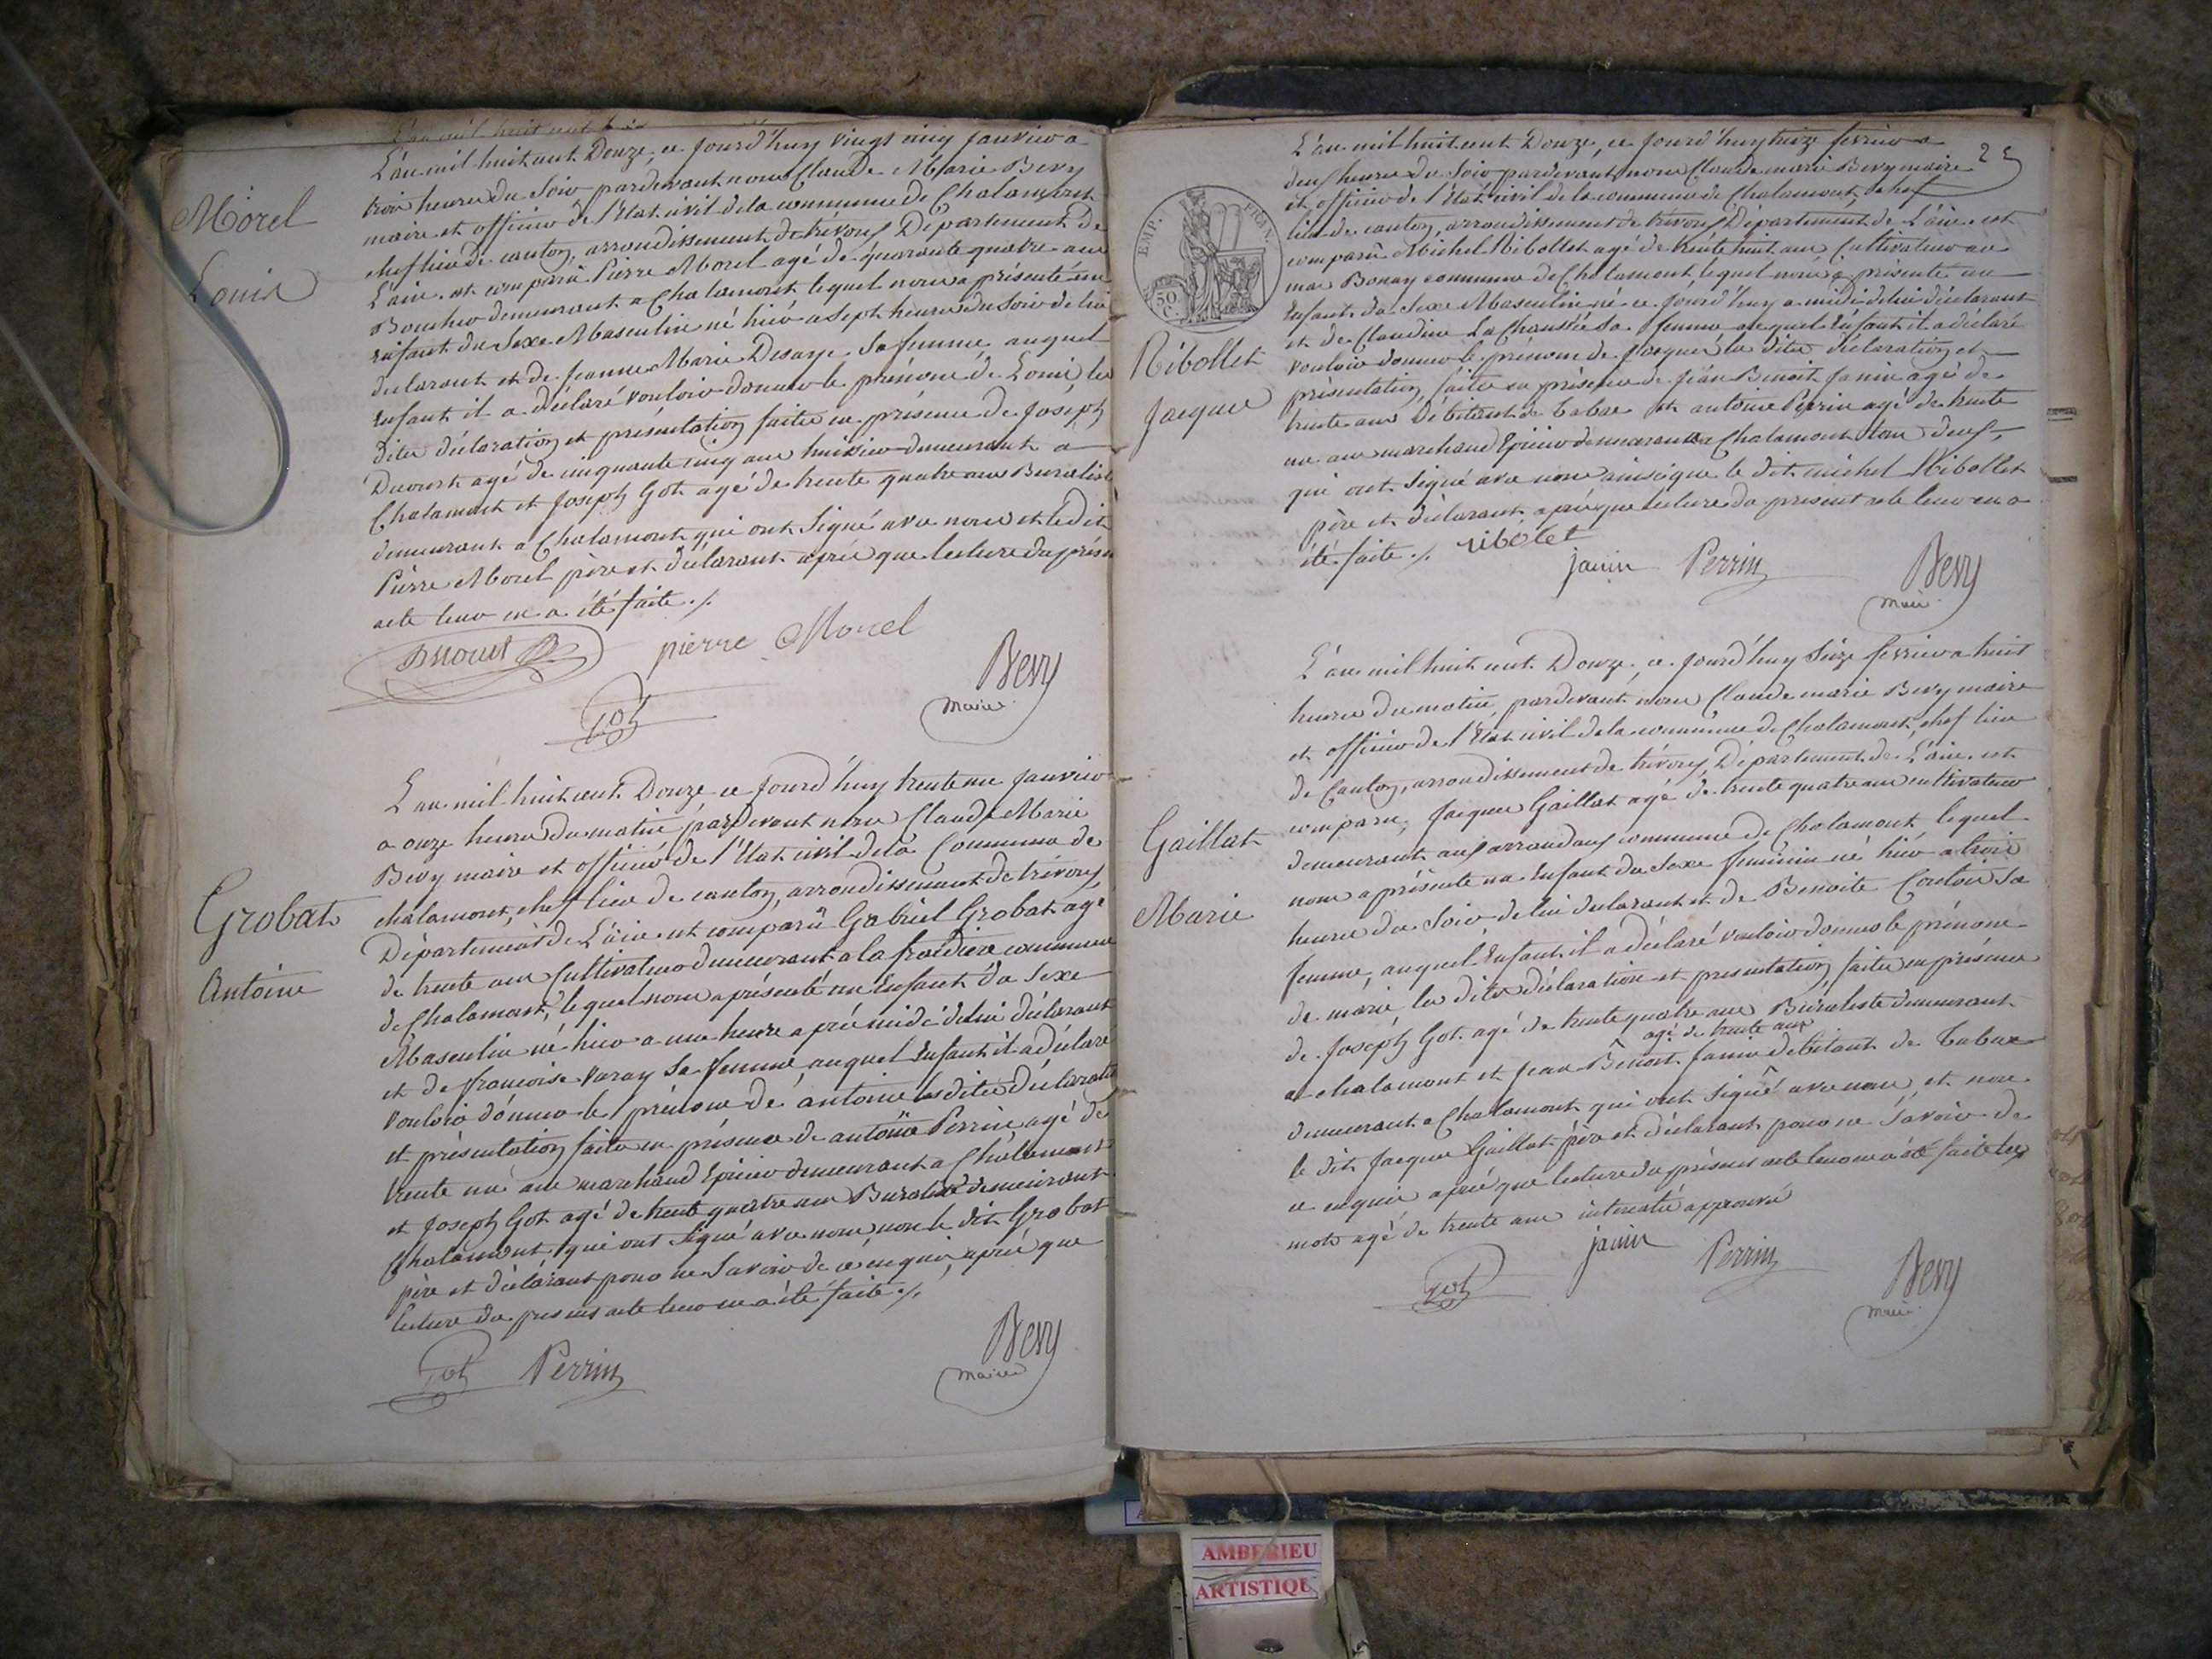 Morel
Louis
L'an mil huit cent Douze, ce Jourd'huy vingt cinq Janvier a
trois heures du Soir pardevant nous Claude Marie Bevy
maire et officier de l'Etat civil de la commune de Chalamont
chef lieu de canton, arrondissement de trévoux Département de
L'ain. est comparu Pierre Morel agé de quarante quatre ans
Boucher demeurant a Chalamont lequel nous a présenté un
enfant du Sexe Masculin né hier a Sept heures du Soir de lui
declarant et de Jeanne Marie Desaye Sa femme auquel
Enfant il a déclaré vouloir donner le prénome de Louis, les
dites déclaration et présentation faites en présence de Joseph
agé de cinquante cinq ans huissier demeurant a
Chalamont et Joseph Got agé de trente quatre ans Buraliste
demeurant a Chalamont qui ont Signé avec nous et ledit
Pierre Morel père et déclarant après que lecture du présent
acte leur en a été faite ./.
pierre Morel
Got
Bevy
maire
Grobat
Antoine
L'an mil huit cent Douze ce Jourd'huy trente un Janvier
a onze heures du matin pardevant nous Claude Marie
Bevy maire et officier de l'Etat civil de la Commune de
chalamont, chef lieu de canton, arrondissement de trévoux
Département de L'ain. est comparû Gabriel Grobat agé
de trente ans Cultivateur demeurant a la froidiere commune
de Chalamont, lequel nous a présenté un Enfant du Sexe
Masculin né hier a une heure après midi de lui déclarant
et de francoise varay Sa femme, auquel Enfant il a déclaré
vouloir donner le prénome de antoine les dites déclaration
et présentation faites en présence de antoine Perrin agé de
trente un ans marchand Epicier demeurant a Chalamont
et Joseph Got agé de trente quatre ans Buraliste demeurant
Chalamont, qui ont Signé avec nous non le dit Grobat
père et déclarant pour ne Savoir de ce enquis, après que
lecture du present acte leur en a été faite ./.
Got Perrin
Bevy
maire
25
EMP. FRAN.
50.
C.
Ribollet
Jacques
L'an mil huit cent Douze, ce Jourd'huy treize fevrier a
deux heures du Soir pardevant nous Claude marie Bevy maire
et officier de l'Etat civil de la commune de Chalamont, chef
lieu de canton, arrondissement de trévoux Département de L'ain. est
comparû Michel Ribollet agé de trente huit ans Cultivateur au
mas Bonay commune de Chalamont, lequel nous a présenté un
Enfant du Sexe Masculin né ce Jourd'huy a midi de lui déclarant
et de Claudine La Chaussée Sa femme auquel Enfant il a déclaré
vouloir donner le prénome de Jacques les dites déclaration et
présentation, faites en présence de Jean Benoit Janin agé de
trente ans Débitant de Tabac et antoine Perrin agé de trente
un ans marchand Epicier demeurant a Chalamont tous deux,
qui ont Signé avec nous ainsi que le dit michel Ribollet
père et déclarant après que lecture du present acte leur en a
été faite ./. ribolet
janin Perrin
Bevy
maire
Gaillat
Marie
L'an mil huit cent Douze, ce Jourd'huy Seize fevrier a huit
heures du matin, pardevant nous Claude marie Bevy maire
et officier de l'Etat civil de la commune de Chalamont, chef lieu
de Canton, arrondissement de trévoux, Département de L'ain. est
comparu, Jacques Gaillat agé de trente quatre ans cultivateur
demeurant aux commune de Chalamont, lequel
nous a présenté un Enfant du Sexe feminin né hier a trois
heures du Soir, de lui declarant et de Benoite Coutoir Sa
femme, auquel Enfant il a déclaré vouloir donner le prénome
de marie les dites déclaration et presentation, faites en présence
de Joseph Got agé de trente quatre ans Buraliste demeurant
a chalamont et Jean Benoit Janin agé de trente ans debitant de Tabac
demeurant a Chalamont qui ont Signé avec nous, et non
le dit Jacques Gaillat père et déclarant pour ne Savoir de
ce enquis après que lecture du présent acte leur en a été faite les
mots agé de trente ans intercalés approuvés
Got janin Perrin
Bevy
maire
AMBERIEU
ARTISTIQUE